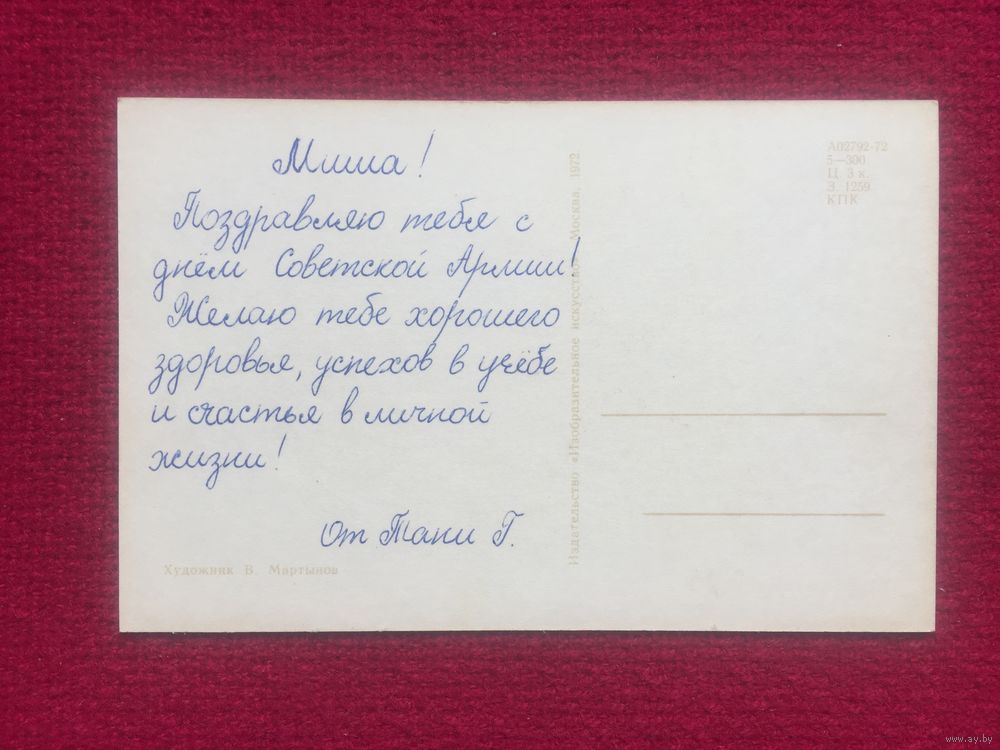 Миша!
Поздравляю тебя с
днём Советской Армии!
Желаю тебе хорошего
здоровья, успехов в учёбе
и счастья в личной
жизни!
От Тани Г.
Художник В. Мартынов
Издательство «Изобразительное искусство». Москва. 1972
А02792-72
5—300
Ц. 3 к.
З. 1259
КПК
www.ay.by